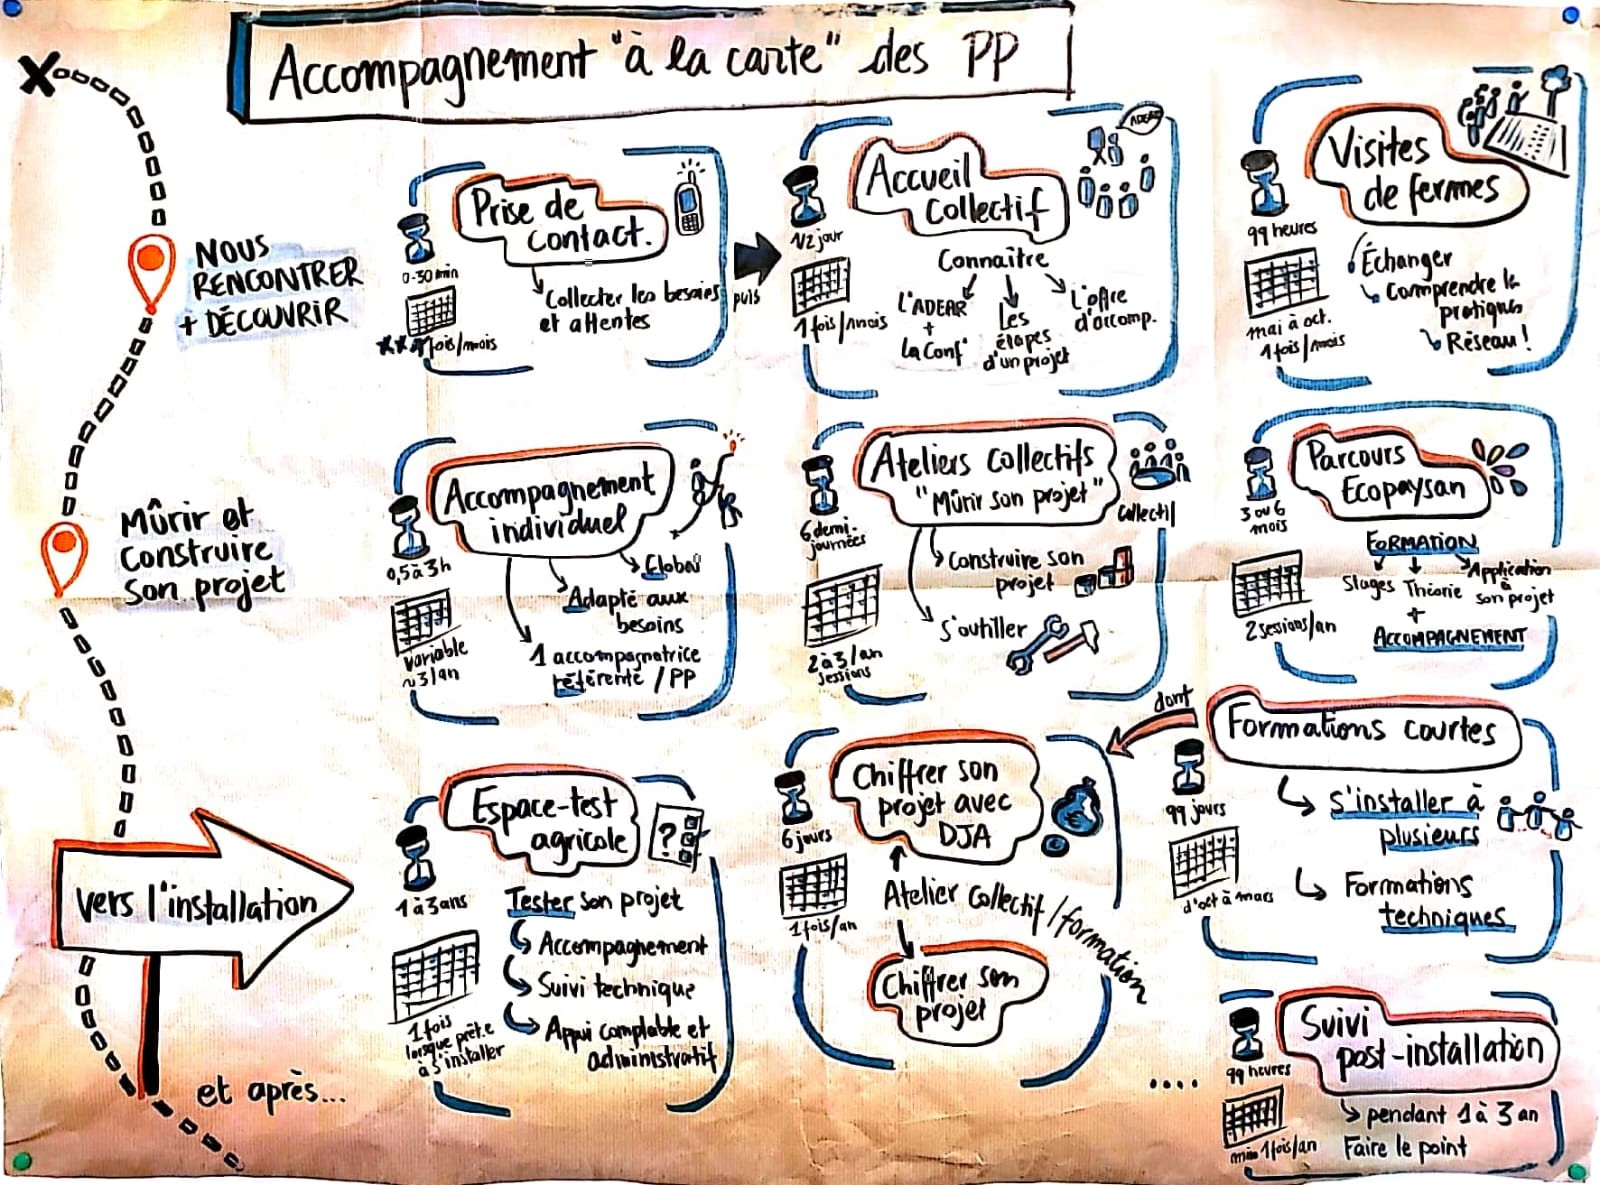 Accompagnement "à la carte" des PP
NOUS
RENCONTRER
+ DÉCOUVRIR
Prise de
contact.
0-30 min
fois/mois
Collecter les besoins
et attentes
puis
Accueil
Collectif
ADEAR
1/2 jour
1 fois/mois
Connaître
L'ADEAR
+
la Conf'
Les
étapes
d'un projet
L'offre
d'accomp.
Visites
de fermes
99 heures
mai à oct.
1 fois/mois
Échanger
Comprendre la
pratique
Réseau !
Mûrir et
Construire
son projet
Accompagnement
individuel
0,5 à 3h
variable
~3/an
Global
Adapté aux
besoins
1 accompagnatrice
référente / PP
Ateliers collectifs
"Mûrir son projet"
Collectif
6 demi-
journées
2 à 3/an
sessions
Construire son
projet
S'outiller
Parcours
Ecopaysan
3 ou 6
mois
2 sessions/an
FORMATION
Stages Théorie Application
à
son projet
+
ACCOMPAGNEMENT
vers l'installation
Espace-test
agricole
?
1 à 3 ans
1 fois
lorsque prêt.e
à s'installer
Tester son projet
Accompagnement
Suivi technique
Appui comptable et
administratif
Chiffrer son
projet avec
DJA
6 jours
1 fois/an
Atelier Collectif / formation
Chiffrer son
projet
dont
Formations courtes
99 jours
d'oct à mars
S'installer à
plusieurs
Formations
techniques
et après...
....
Suivi
post-installation
99 heures
min 1 fois/an
pendant 1 à 3 an
Faire le point